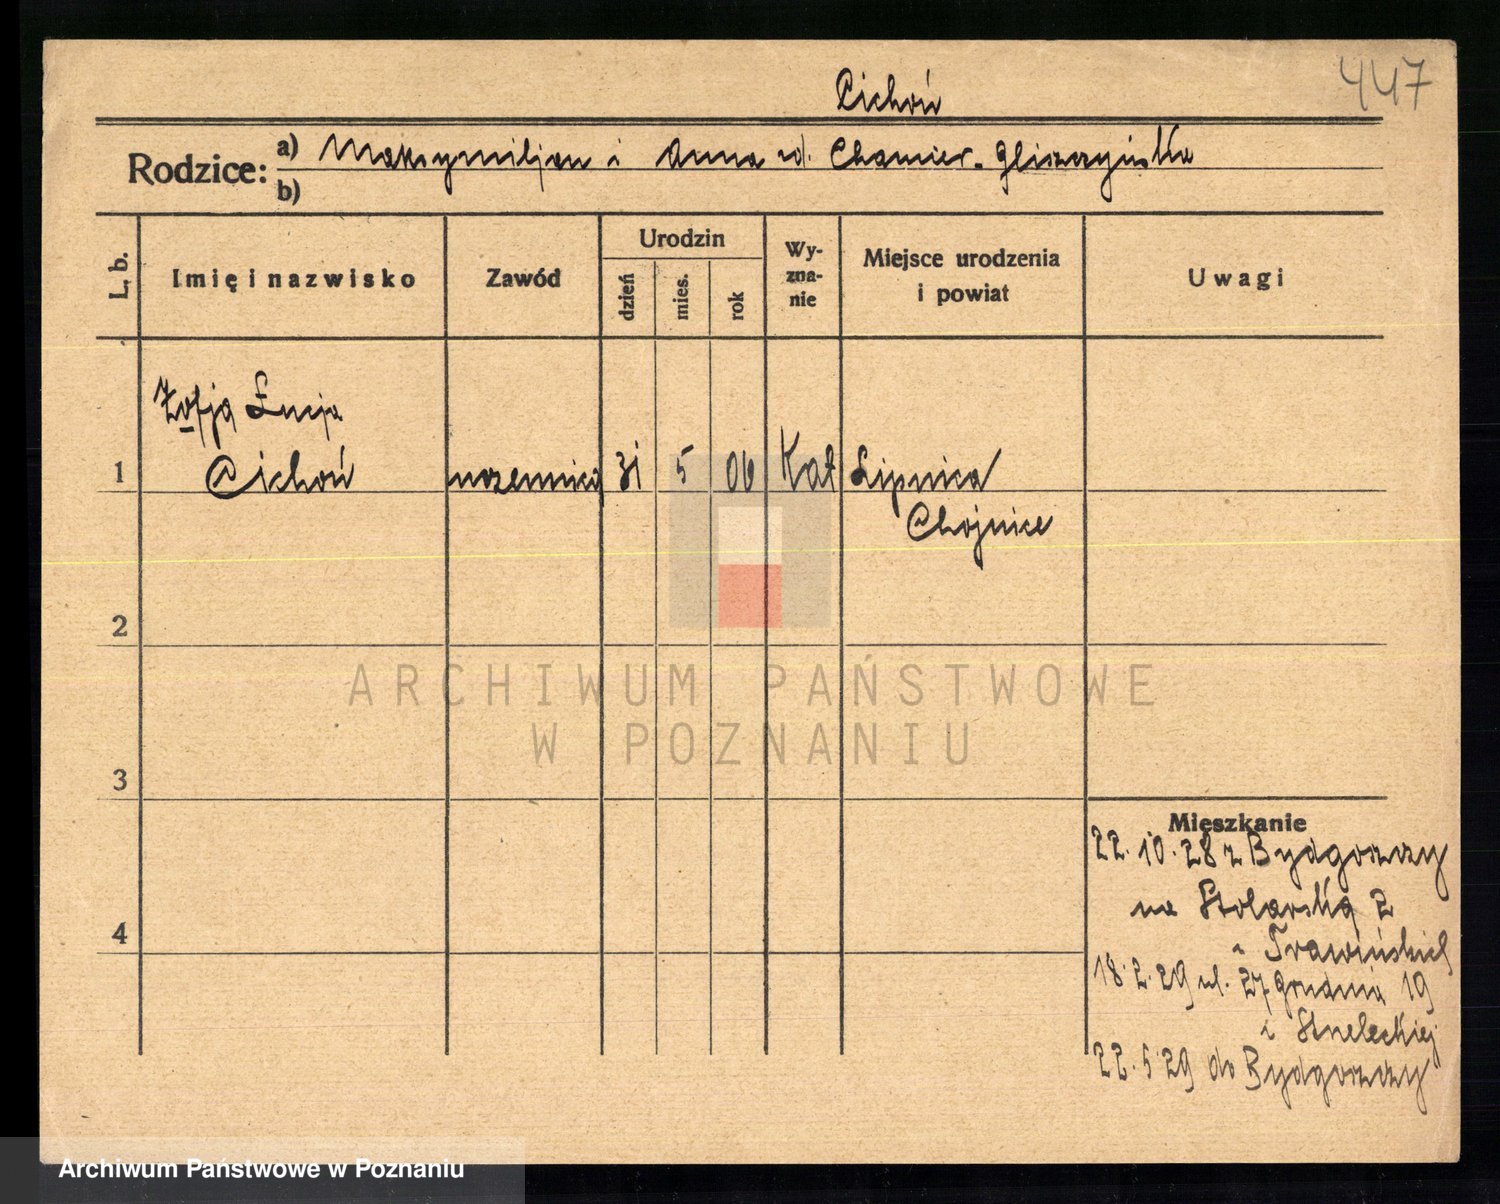 447
Cichoń
Rodzice: a) Maksymiljan i Anna rd. Chamier-Gliszczyńska
b)
L. b.
Imię i nazwisko
Zawód
Urodzin
dzień
mies.
rok
Wy-
zna-
nie
Miejsce urodzenia
i powiat
Uwagi
Zofja Łucja
1 Cichoń uczennica 31 5 06 Kat Lipnica
Chojnice
2
3
4
Mieszkanie
22.10.28 z Bydgoszczy
na Stolarską 2
u Trawińskich
18.2.29 ul. 27 Grudnia 19
u Streleckiej
22.5.29 do Bydgoszczy
ARCHIWUM PAŃSTWOWE
W POZNANIU
Archiwum Państwowe w Poznaniu